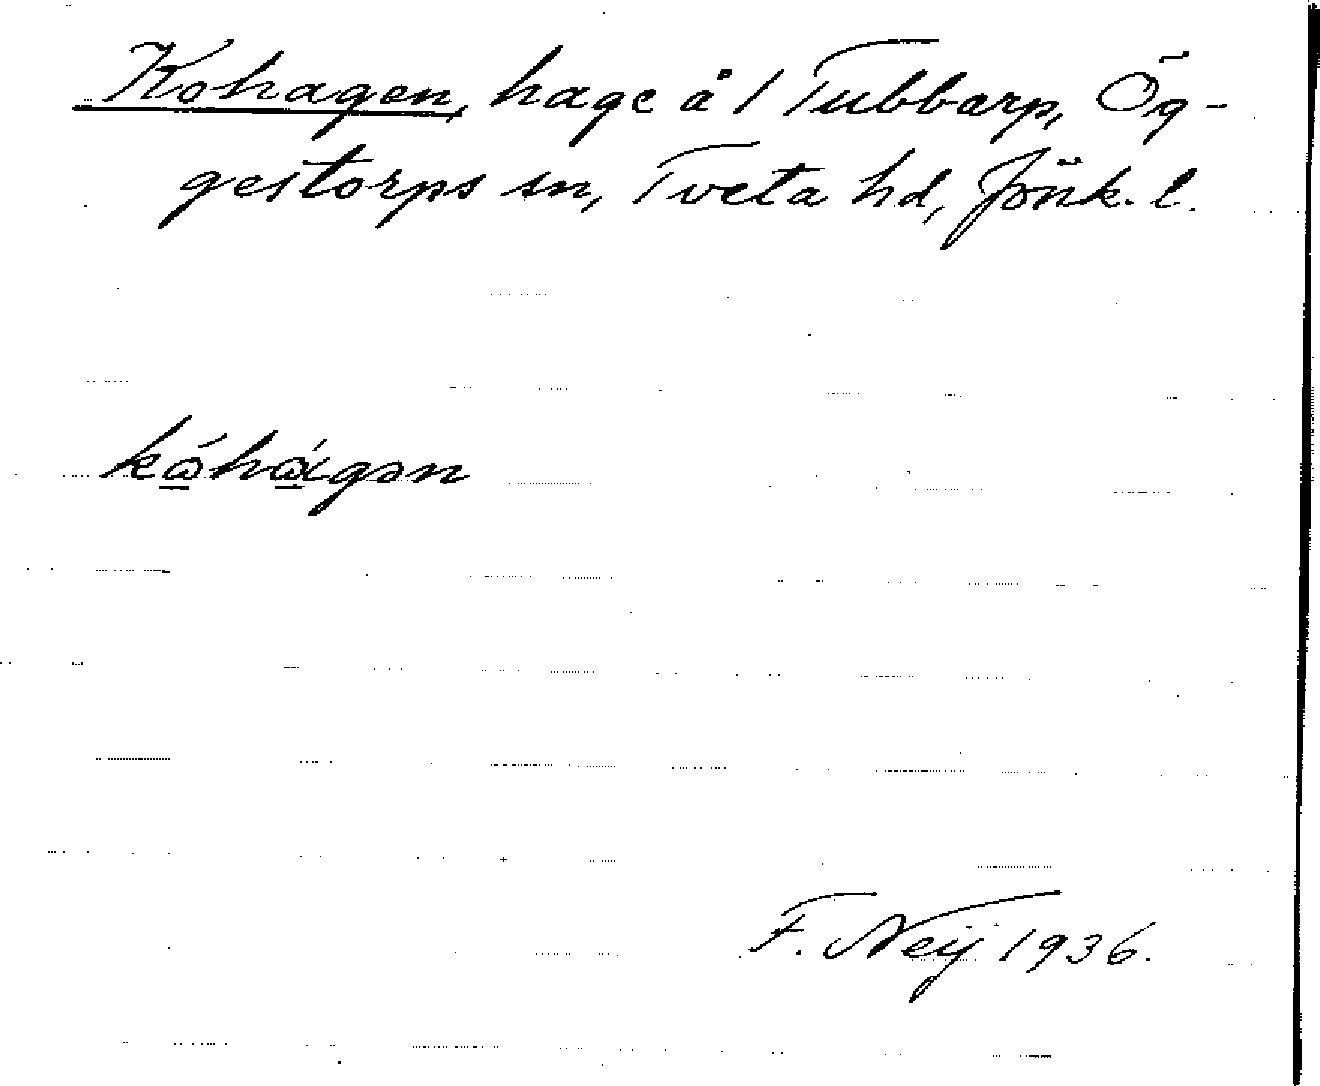 Kohagen, hage å / Tubbarp, Ög-
gestorps sn, Tveta hd, Jönk. l.
F. Neij 1936.